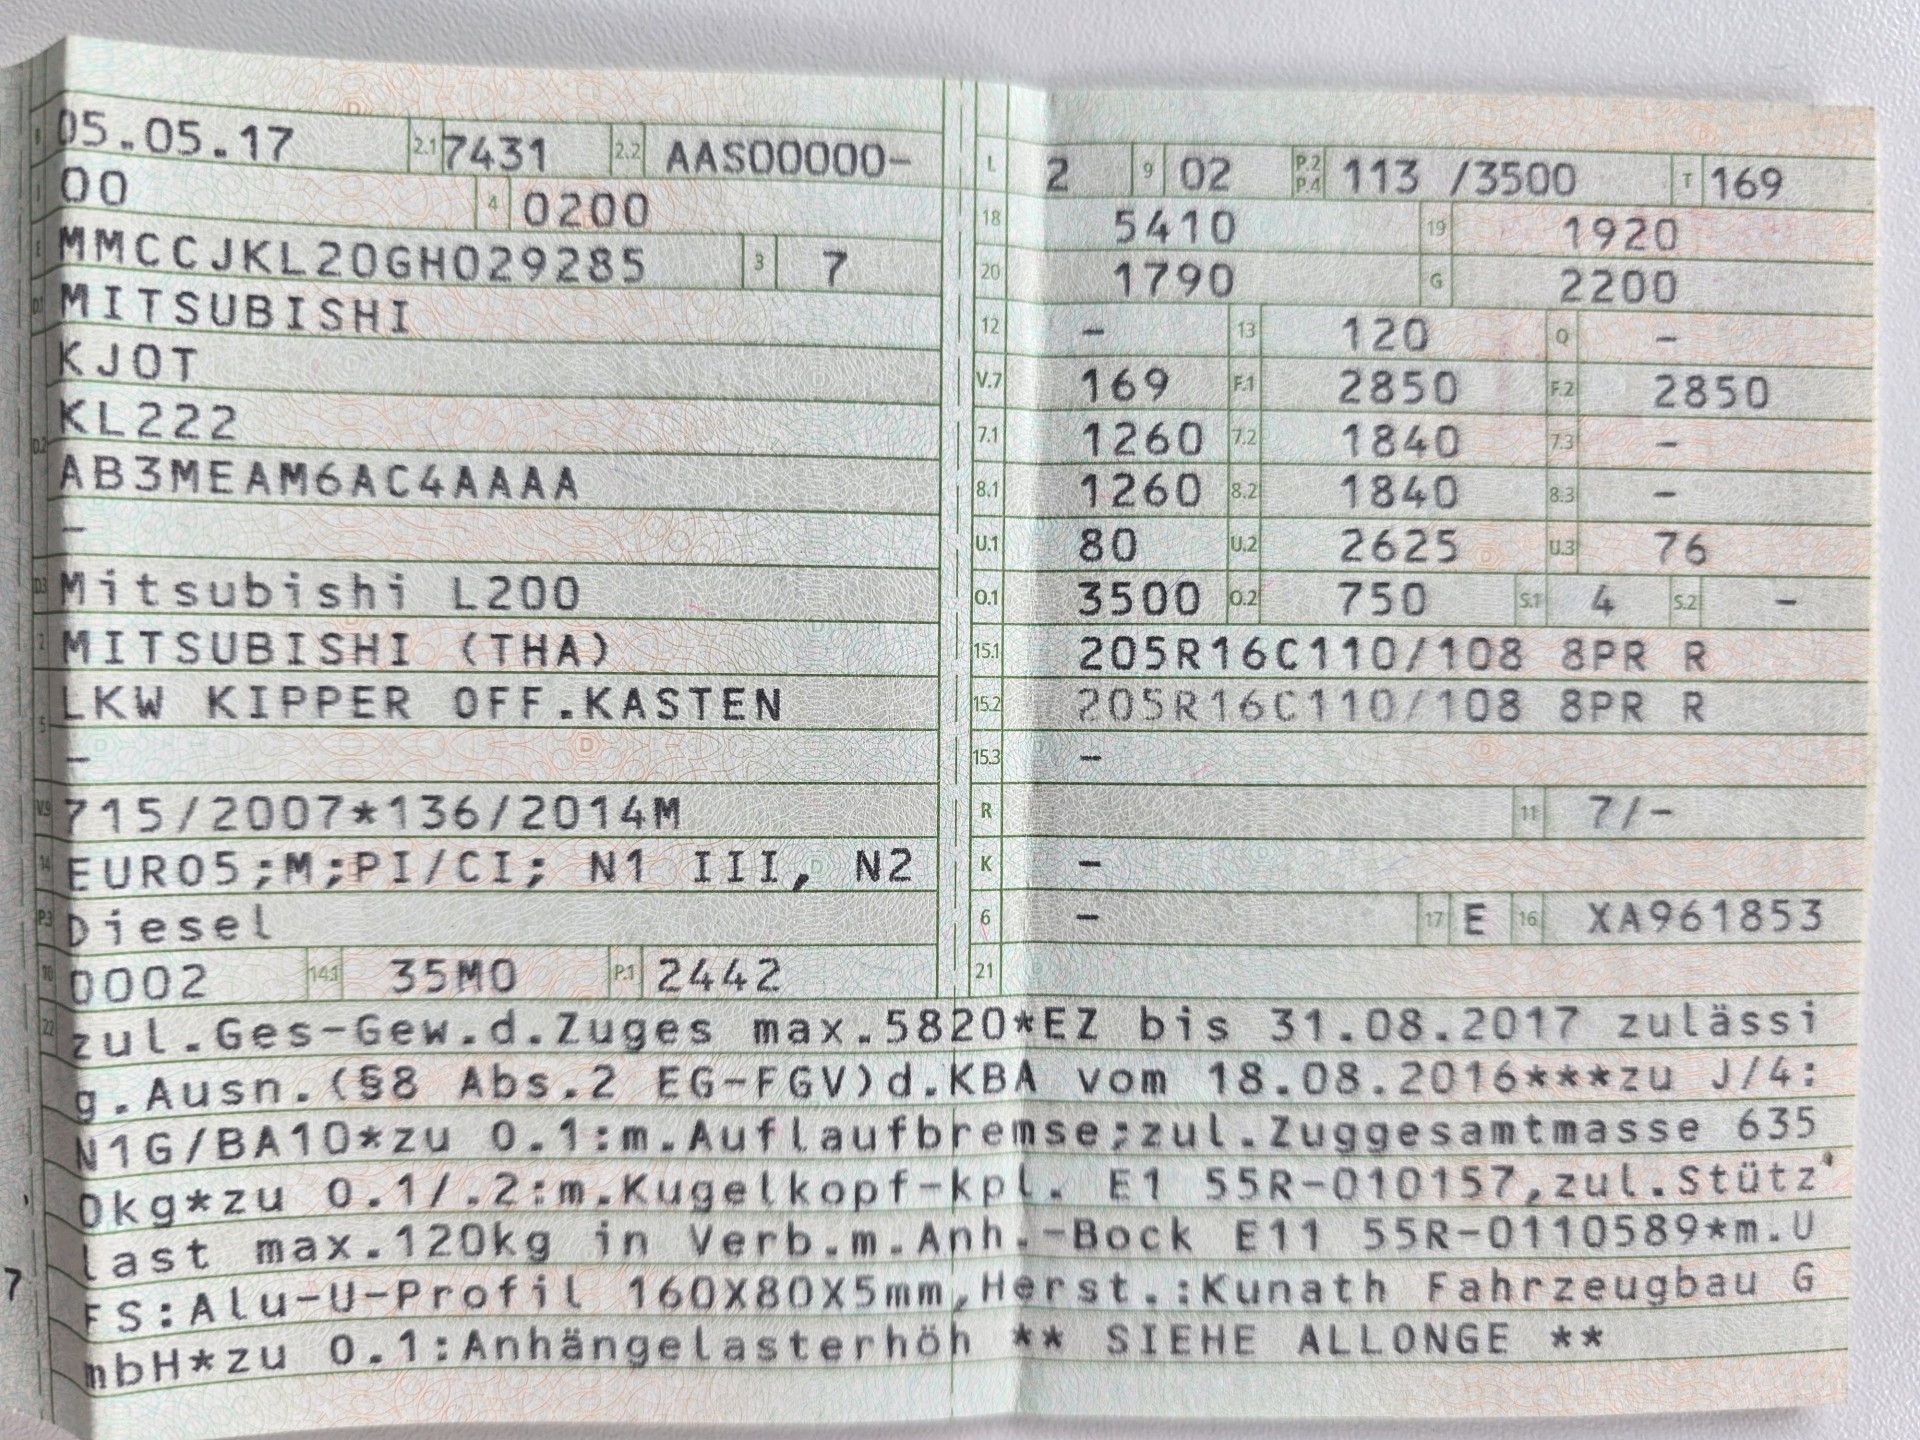 B 05.05.17 2.1 7431 2.2 AAS00000-
J 00 4 0200
E MMCCJKL20GH029285 3 7
D.1 MITSUBISHI
KJ0T
D.2 KL222
AB3MEAM6AC4AAAA
-
D.3 Mitsubishi L200
2 MITSUBISHI (THA)
5 LKW KIPPER OFF.KASTEN
-
V.9 715/2007*136/2014M
14 EURO5;M;PI/CI; N1 III, N2
P.3 Diesel
10 0002 14.1 35M0 P.1 2442
L 2 9 02 P.2 P.4 113 /3500 T 169
18 5410 19 1920
20 1790 G 2200
12 - 13 120 Q -
V.7 169 F.1 2850 F.2 2850
7.1 1260 7.2 1840 7.3 -
8.1 1260 8.2 1840 8.3 -
U.1 80 U.2 2625 U.3 76
O.1 3500 O.2 750 S.1 4 S.2 -
15.1 205R16C110/108 8PR R
15.2 205R16C110/108 8PR R
15.3 -
R 11 7/-
K -
6 - 17 E 16 XA961853
21
22 zul.Ges-Gew.d.Zuges max.5820*EZ bis 31.08.2017 zulässi
g.Ausn.(§8 Abs.2 EG-FGV)d.KBA vom 18.08.2016***zu J/4:
N1G/BA10*zu O.1:m.Auflaufbremse;zul.Zuggesamtmasse 635
0kg*zu O.1/.2:m.Kugelkopf-kpl. E1 55R-010157,zul.Stütz
last max.120kg in Verb.m.Anh.-Bock E11 55R-0110589*m.U
FS:Alu-U-Profil 160X80X5mm,Herst.:Kunath Fahrzeugbau G
mbH*zu O.1:Anhängelasterhöh ** SIEHE ALLONGE **
7